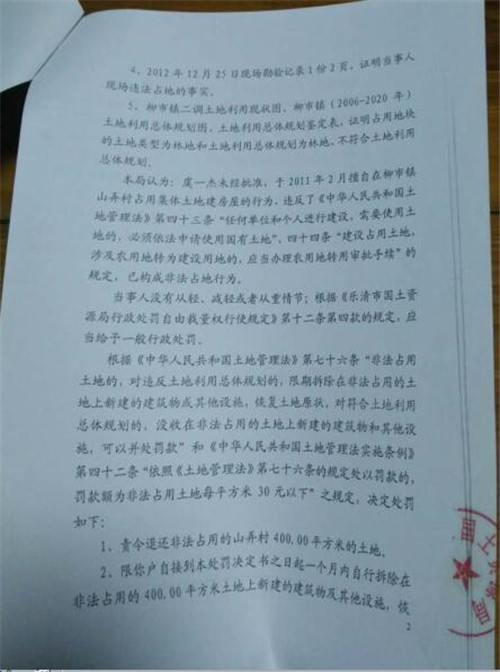 4、2012年12月25日现场勘验记录1份2页，证明当事人
现场违法占地的事实。
5、柳市镇二调土地利用现状图、柳市镇（2006-2020年）
土地利用总体规划图、土地利用总体规划鉴定表，证明占用地块
的土地类型为林地和土地利用总体规划为林地，不符合土地利用
总体规划。
本局认为：虞一杰未经批准，于2011年2月擅自在柳市镇
山弄村占用集体土地建房屋的行为，违反了《中华人民共和国土
地管理法》第四十三条“任何单位和个人进行建设，需要使用土
地的，必须依法申请使用国有土地”、四十四条“建设占用土地，
涉及农用地转为建设用地的，应当办理农用地转用审批手续”的
规定，已构成非法占地行为。
当事人没有从轻、减轻或者从重情节；根据《乐清市国土资
源局行政处罚自由裁量权行使规定》第十二条第四款的规定，应
当给予一般行政处罚。
根据《中华人民共和国土地管理法》第七十六条“非法占用
土地的，对违反土地利用总体规划的，限期拆除在非法占用的土
地上新建的建筑物或其他设施，恢复土地原状，对符合土地利用
总体规划的，没收在非法占用的土地上新建的建筑物和其他设
施，可以并处罚款”和《中华人民共和国土地管理法实施条例》
第四十二条“依照《土地管理法》第七十六条的规定处以罚款的，
罚款额为非法占用土地每平方米30元以下”之规定，决定处罚
如下：
1、责令退还非法占用的山弄村400.00平方米的土地。
2、限你户自接到本处罚决定书之日起一个月内自行拆除在
非法占用的400.00平方米土地上新建的建筑物及其他设施，恢
2